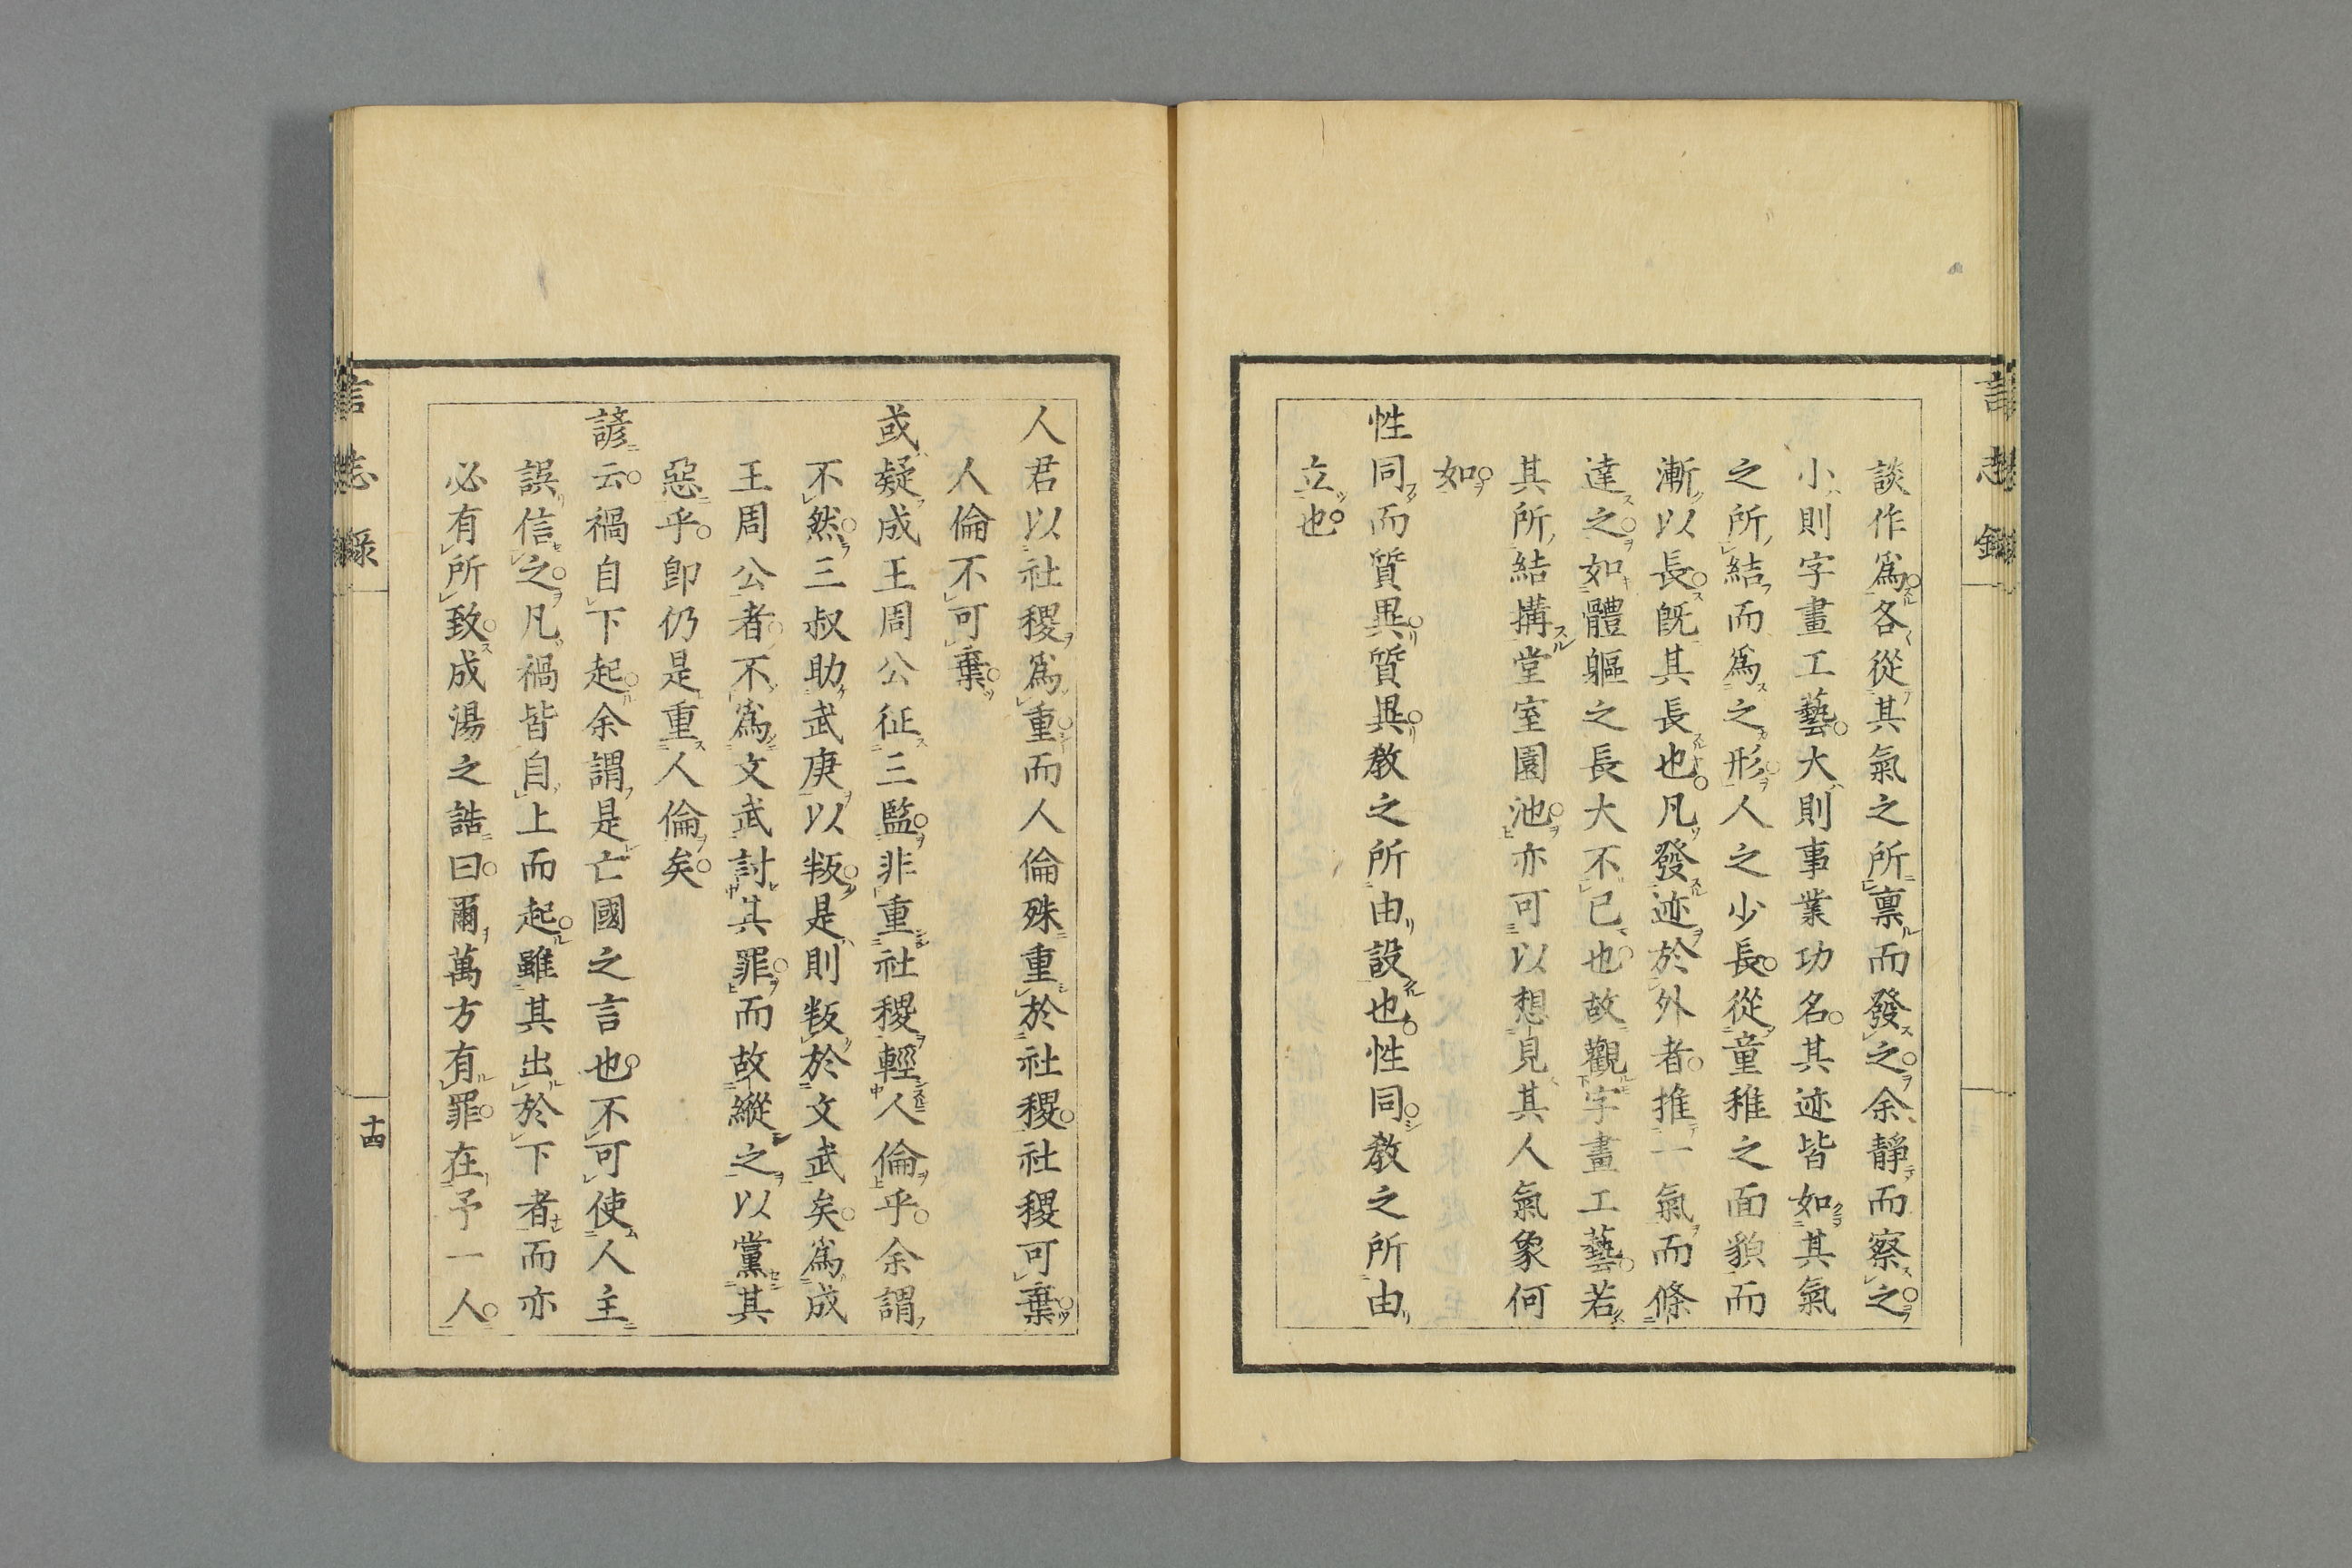 言志錄
談作爲各從其氣之所稟而發之余靜而察之
小則字畫工藝大則事業功名其迹皆如其氣
之所結而爲之形人之少長從童稚之面貌而
漸以長旣其長也凡發迹於外者推一氣而條
達之如體軀之長大不已也故觀字畫工藝若
其所結搆堂室園池亦可以想見其人氣象何
如
性同而質異質異敎之所由設也性同敎之所由
立也
人君以社稷爲重而人倫殊重於社稷社稷可棄
人倫不可棄
或疑成王周公征三監非重社稷輕人倫乎余謂
不然三叔助武庚以叛是則叛於文武矣爲成
王周公者不爲文武討其罪而故縱之以黨其
惡乎卽仍是重人倫矣
諺云禍自下起余謂是亡國之言也不可使人主
誤信之凡禍皆自上而起雖其出於下者而亦
必有所致成湯之誥曰爾萬方有罪在予一人
言志錄
十四